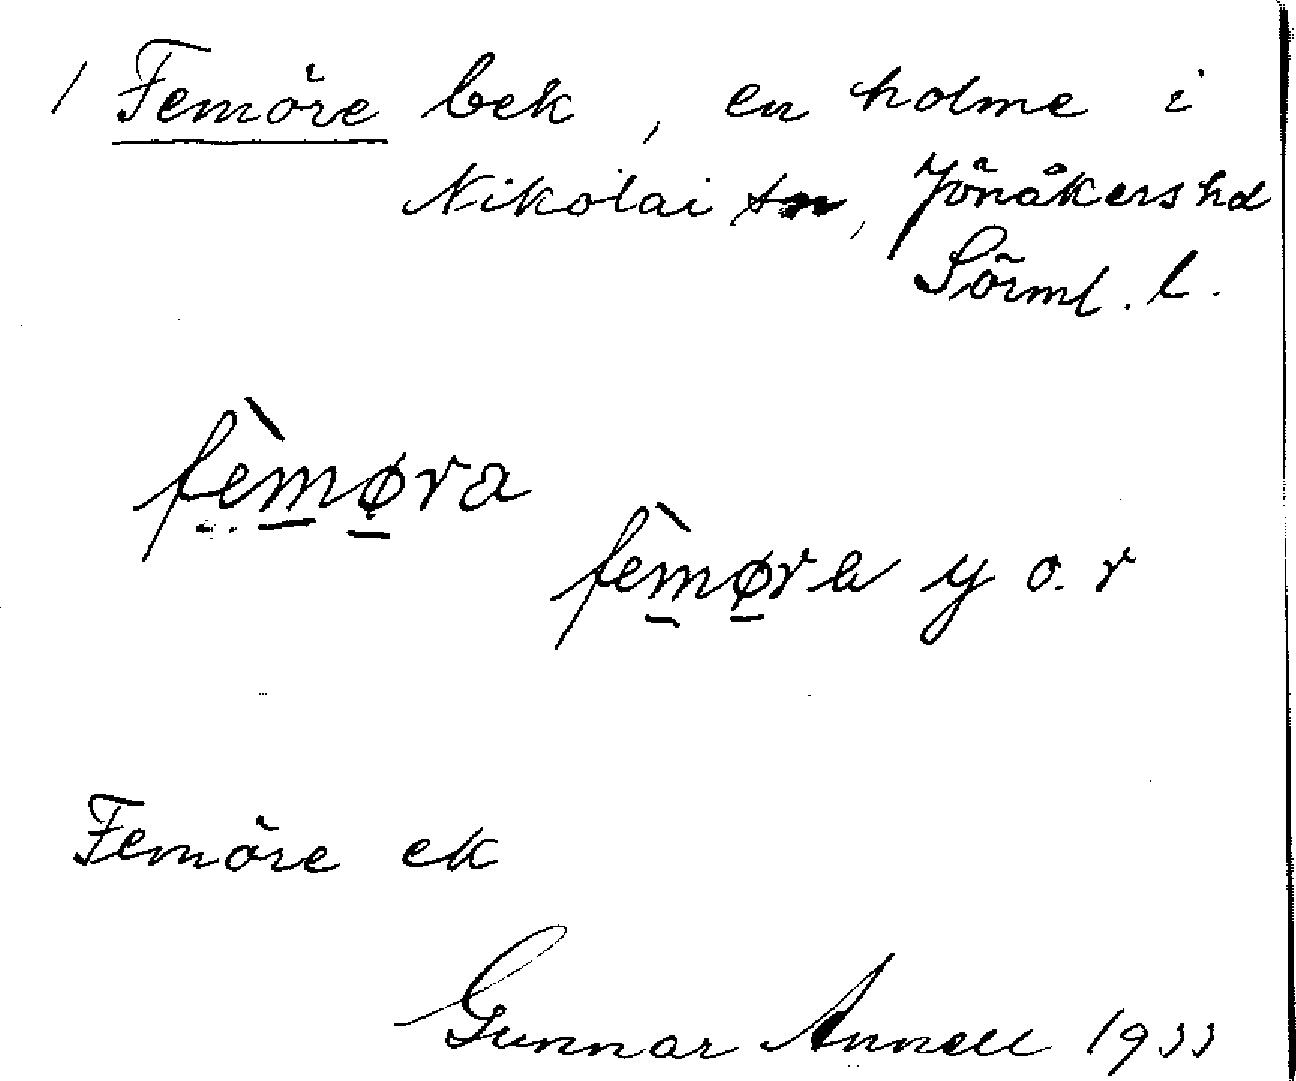 / Femöre bek, en holme i
Nikolai sn, Jönåkers hd
Sörml. l.
fèmøra
fèmøre y o. r
Femöre ek
Gunnar Annell 1933